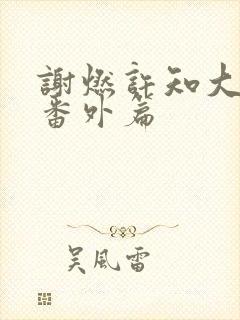 謝燃許知大
番外篇
吴風雷